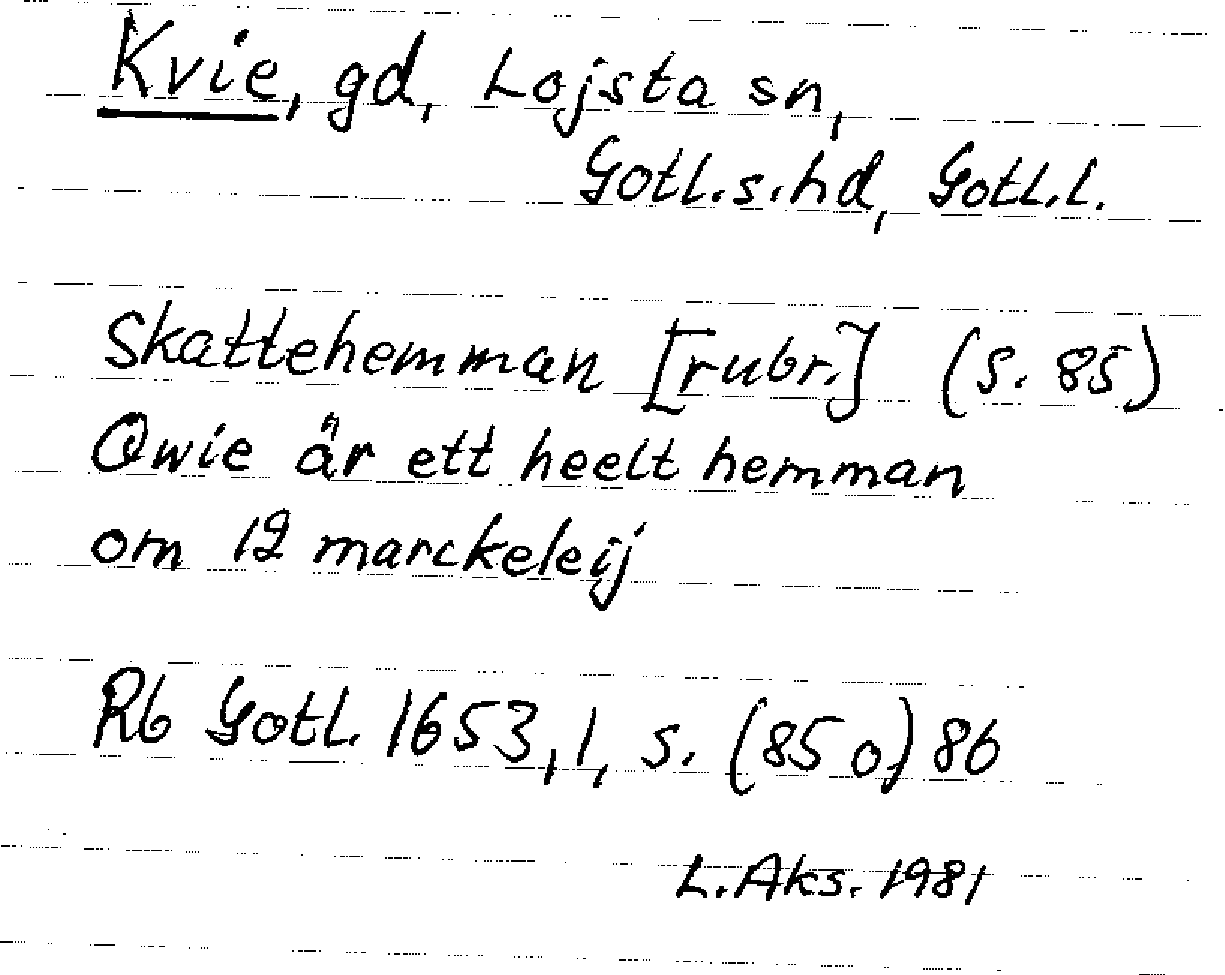 Kvie, gd, Lojsta sn,
Gotl.s.hd, Gotl.l.
Skattehemman [rubr.] (s. 85)
Qwie är ett heelt hemman
om 12 marckeleij
Rb Gotl. 1653,1, s. (85 o) 86
L.Aks. 1981